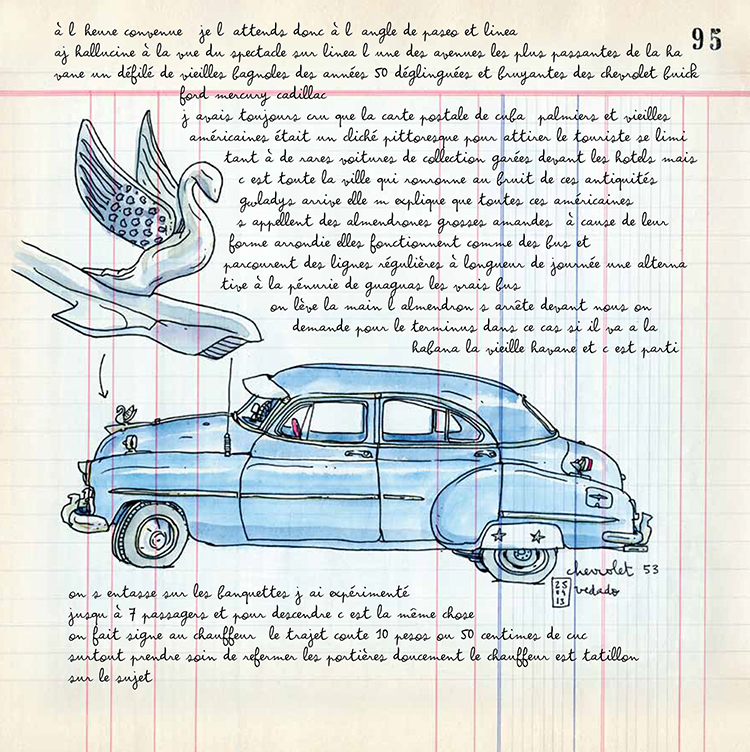 95
à l heure convenue je l attends donc à l angle de paseo et linea
aj hallucine à la vue du spectacle sur linea l une des avenues les plus passantes de la ha
vane un défilé de vieilles bagnoles des années 50 déglinguées et bruyantes des chevrolet buick
ford mercury cadillac
j avais toujours cru que la carte postale de cuba palmiers et vieilles
américaines était un cliché pittoresque pour attirer le touriste se limi
tant à de rares voitures de collection garées devant les hotels mais
c est toute la ville qui ronronne au bruit de ces antiquités
gwladys arrive elle m explique que toutes ces américaines
s appellent des almendrones grosses amandes à cause de leur
forme arrondie elles fonctionnent comme des bus et
parcourent des lignes régulières à longueur de journée une alterna
tive à la pénurie de guaguas les vrais bus
on lève la main l almendron s arrête devant nous on
demande pour le terminus dans ce cas si il va a la
habana la vieille havane et c est parti
chevrolet 53
vedado
25
04
13
on s entasse sur les banquettes j ai expérimenté
jusqu à 7 passagers et pour descendre c est la même chose
on fait signe au chauffeur le trajet coute 10 pesos ou 50 centimes de cuc
surtout prendre soin de refermer les portières doucement le chauffeur est tatillon
sur le sujet